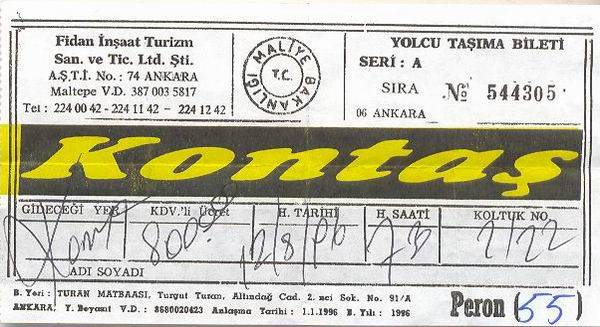 Fidan İnşaat Turizm
San. ve Tic. Ltd. Şti.
A.Ş.T.İ. No.: 74 ANKARA
Maltepe V.D. 387 003 5817
Tel : 224 00 42 - 224 11 42 - 224 12 42
MALİYE BAKANLIĞI
T.C.
YOLCU TAŞIMA BİLETİ
SERİ : A
SIRA № 544305
06 ANKARA
Kontaş
GİDECEĞİ YER KDV.'li Ücret H. TARİHİ H. SAATİ KOLTUK NO
12/8/00 21/22
ADI SOYADI
B. Yeri : TURAN MATBAASI, Turgut Turan, Altındağ Cad. 2. nci Sok. No. 91/A
ANKARA, Y. Beyazıt V.D. : 8680020423 Anlaşma Tarihi : 1.1.1996 B. Yılı : 1996
Peron (55)